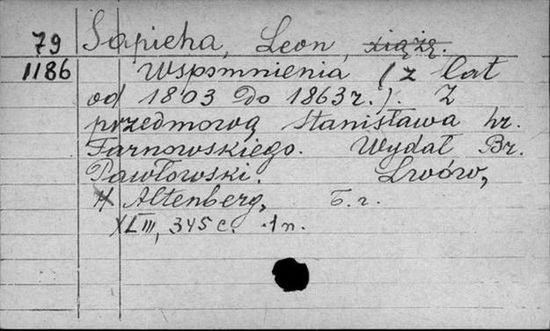 79 Sapieha, Leon, książę.
1186 Wspomnienia (z lat
od 1803 do 1863 r.). Z
przedmową Stanisława hr.
Tarnowskiego. Wydał Br.
Pawłowski. Lwów,
H Altenberg, б. г.
XLIII, 345 с. 1 п.